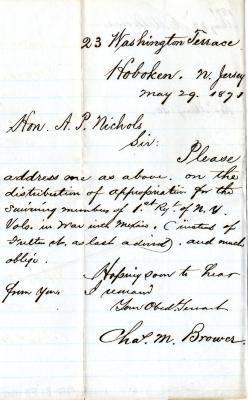 23 Washington Terrace
Hoboken. N. Jersey
May 29. 1871
Hon. A. P. Nichols
Sir:
Please
address me as above. on the
distribution of appropriation for the
surviving members of 1.st Regt. of N. Y.
Vols. in War with Mexico, (instead of
Fulton st. as last advised). and much
oblige.
Hoping soon to hear
from you. I remain
Your Obedt Servant
Chas. M. Brower